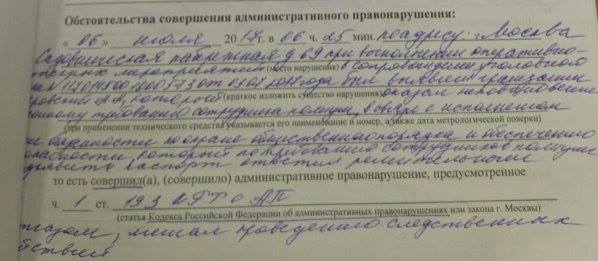 Обстоятельства совершения административного правонарушения:
« 06 » июля 2017 г. в 06 ч. 25 мин. по адресу: г. Москва
Садовническая набережная д 69 при выполнении оперативно-
мероприятий в сопровождении уголовного
(место нарушения)
был выявлен гражданин
А.А, который оказал неповиновение
(кратко изложить существо нарушения)
требованию сотрудника полиции, в связи с исполнением
(при применении технического средства указывается его наименование и номер, а также дата метрологической поверки)
по охране общественного порядка и обеспечению
который по требованию сотрудников полиции
паспорт ответил решительным
то есть совершил(а), (совершило) административное правонарушение, предусмотренное
ч. 1 ст. 19.3 КРФ о АП
(статья Кодекса Российской Федерации об административных правонарушениях или закона г. Москвы)
отказом, мешал проведению следственных
действий